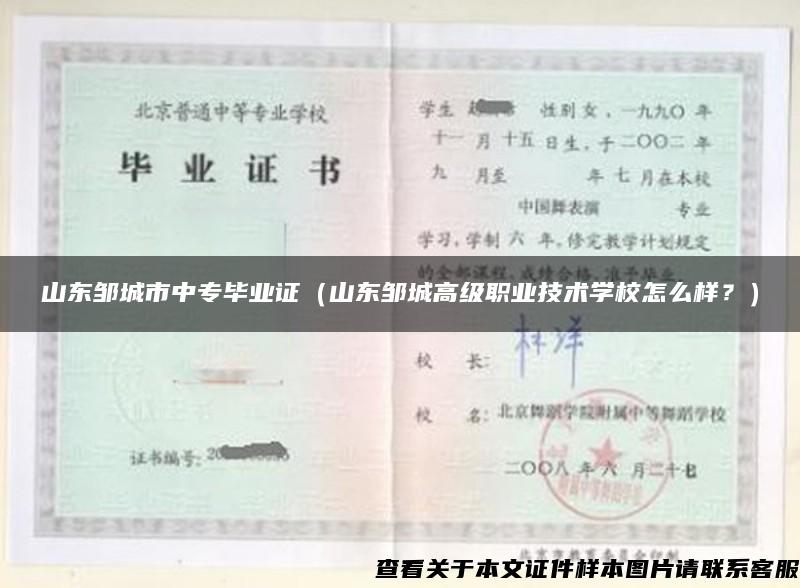 北京普通中等专业学校
毕业证书
证书编号:
学生 性别 女，一九九〇年
十一月十五日生，于二〇〇二年
九 月至 年七月在本校
中国舞表演 专业
学习，学制六年，修完教学计划规定
的全部课程，成绩合格，准予毕业。
山东邹城市中专毕业证（山东邹城高级职业技术学校怎么样？）
校 长:
校 名: 北京舞蹈学院附属中等舞蹈学校
二〇〇八年六月二十七
北京市教育委员会印制
查看关于本文证件样本图片请联系客服